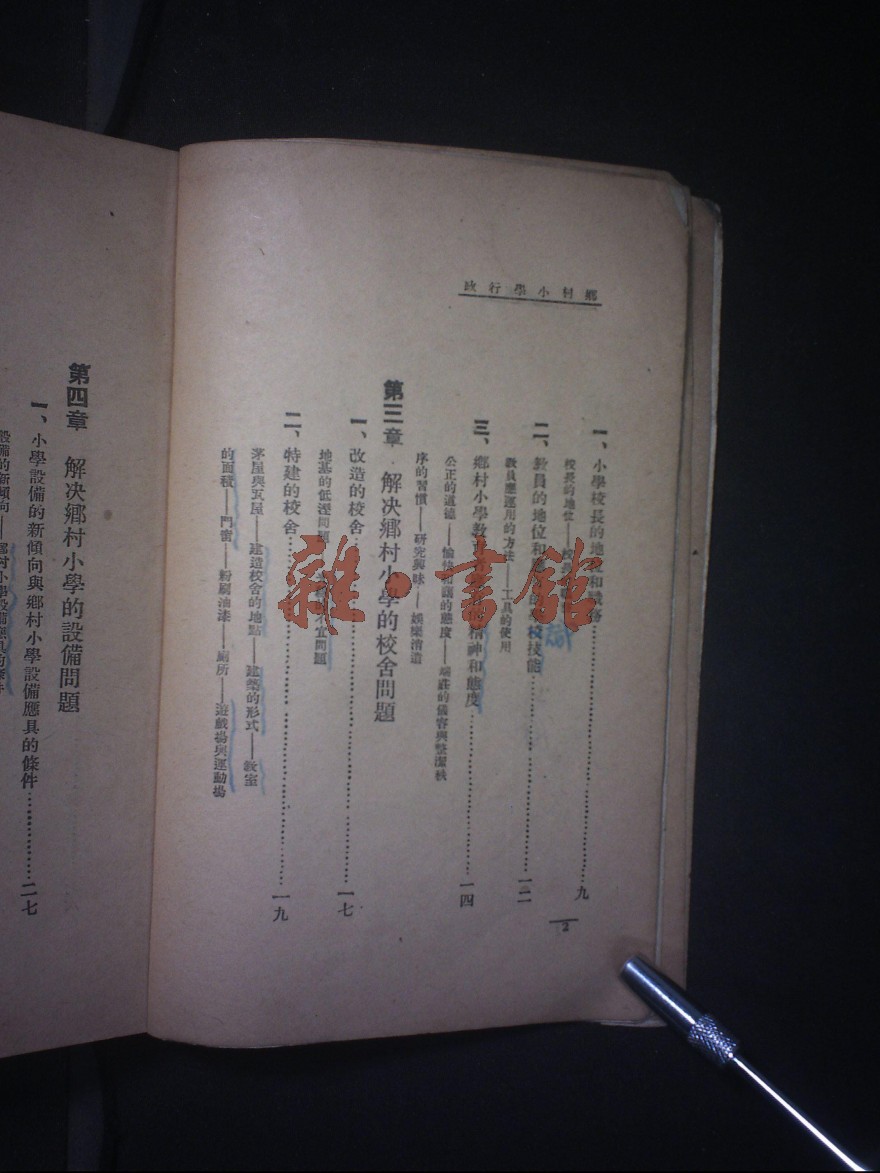 鄉村小學行政
一、小學校長的地和職務……九
校長的地位——校長
二、教員的地位和 的 技能……一二
教員應運用的方法——工具的使用
三、鄉村小學教 精神和態度……一四
公正的道德—— 的態度——端莊的儀容與整潔秩
序的習慣——研究興味——娛樂清遣
第三章 解决鄉村小學的校舍問題
一、改造的校舍……一七
地基的低溼問題—— 不宜問題
二、特建的校舍……一九
茅屋與瓦屋——建造校舍的地點——建築的形式——教室
的面積——門窗——粉刷油漆——廁所——遊戲場與運動場
2
第四章 解决鄉村小學的設備問題
一、小學設備的新傾向與鄉村小學設備應具的條件……二七
設備的新傾向——鄉村小學設備應具的條件
雜·書館